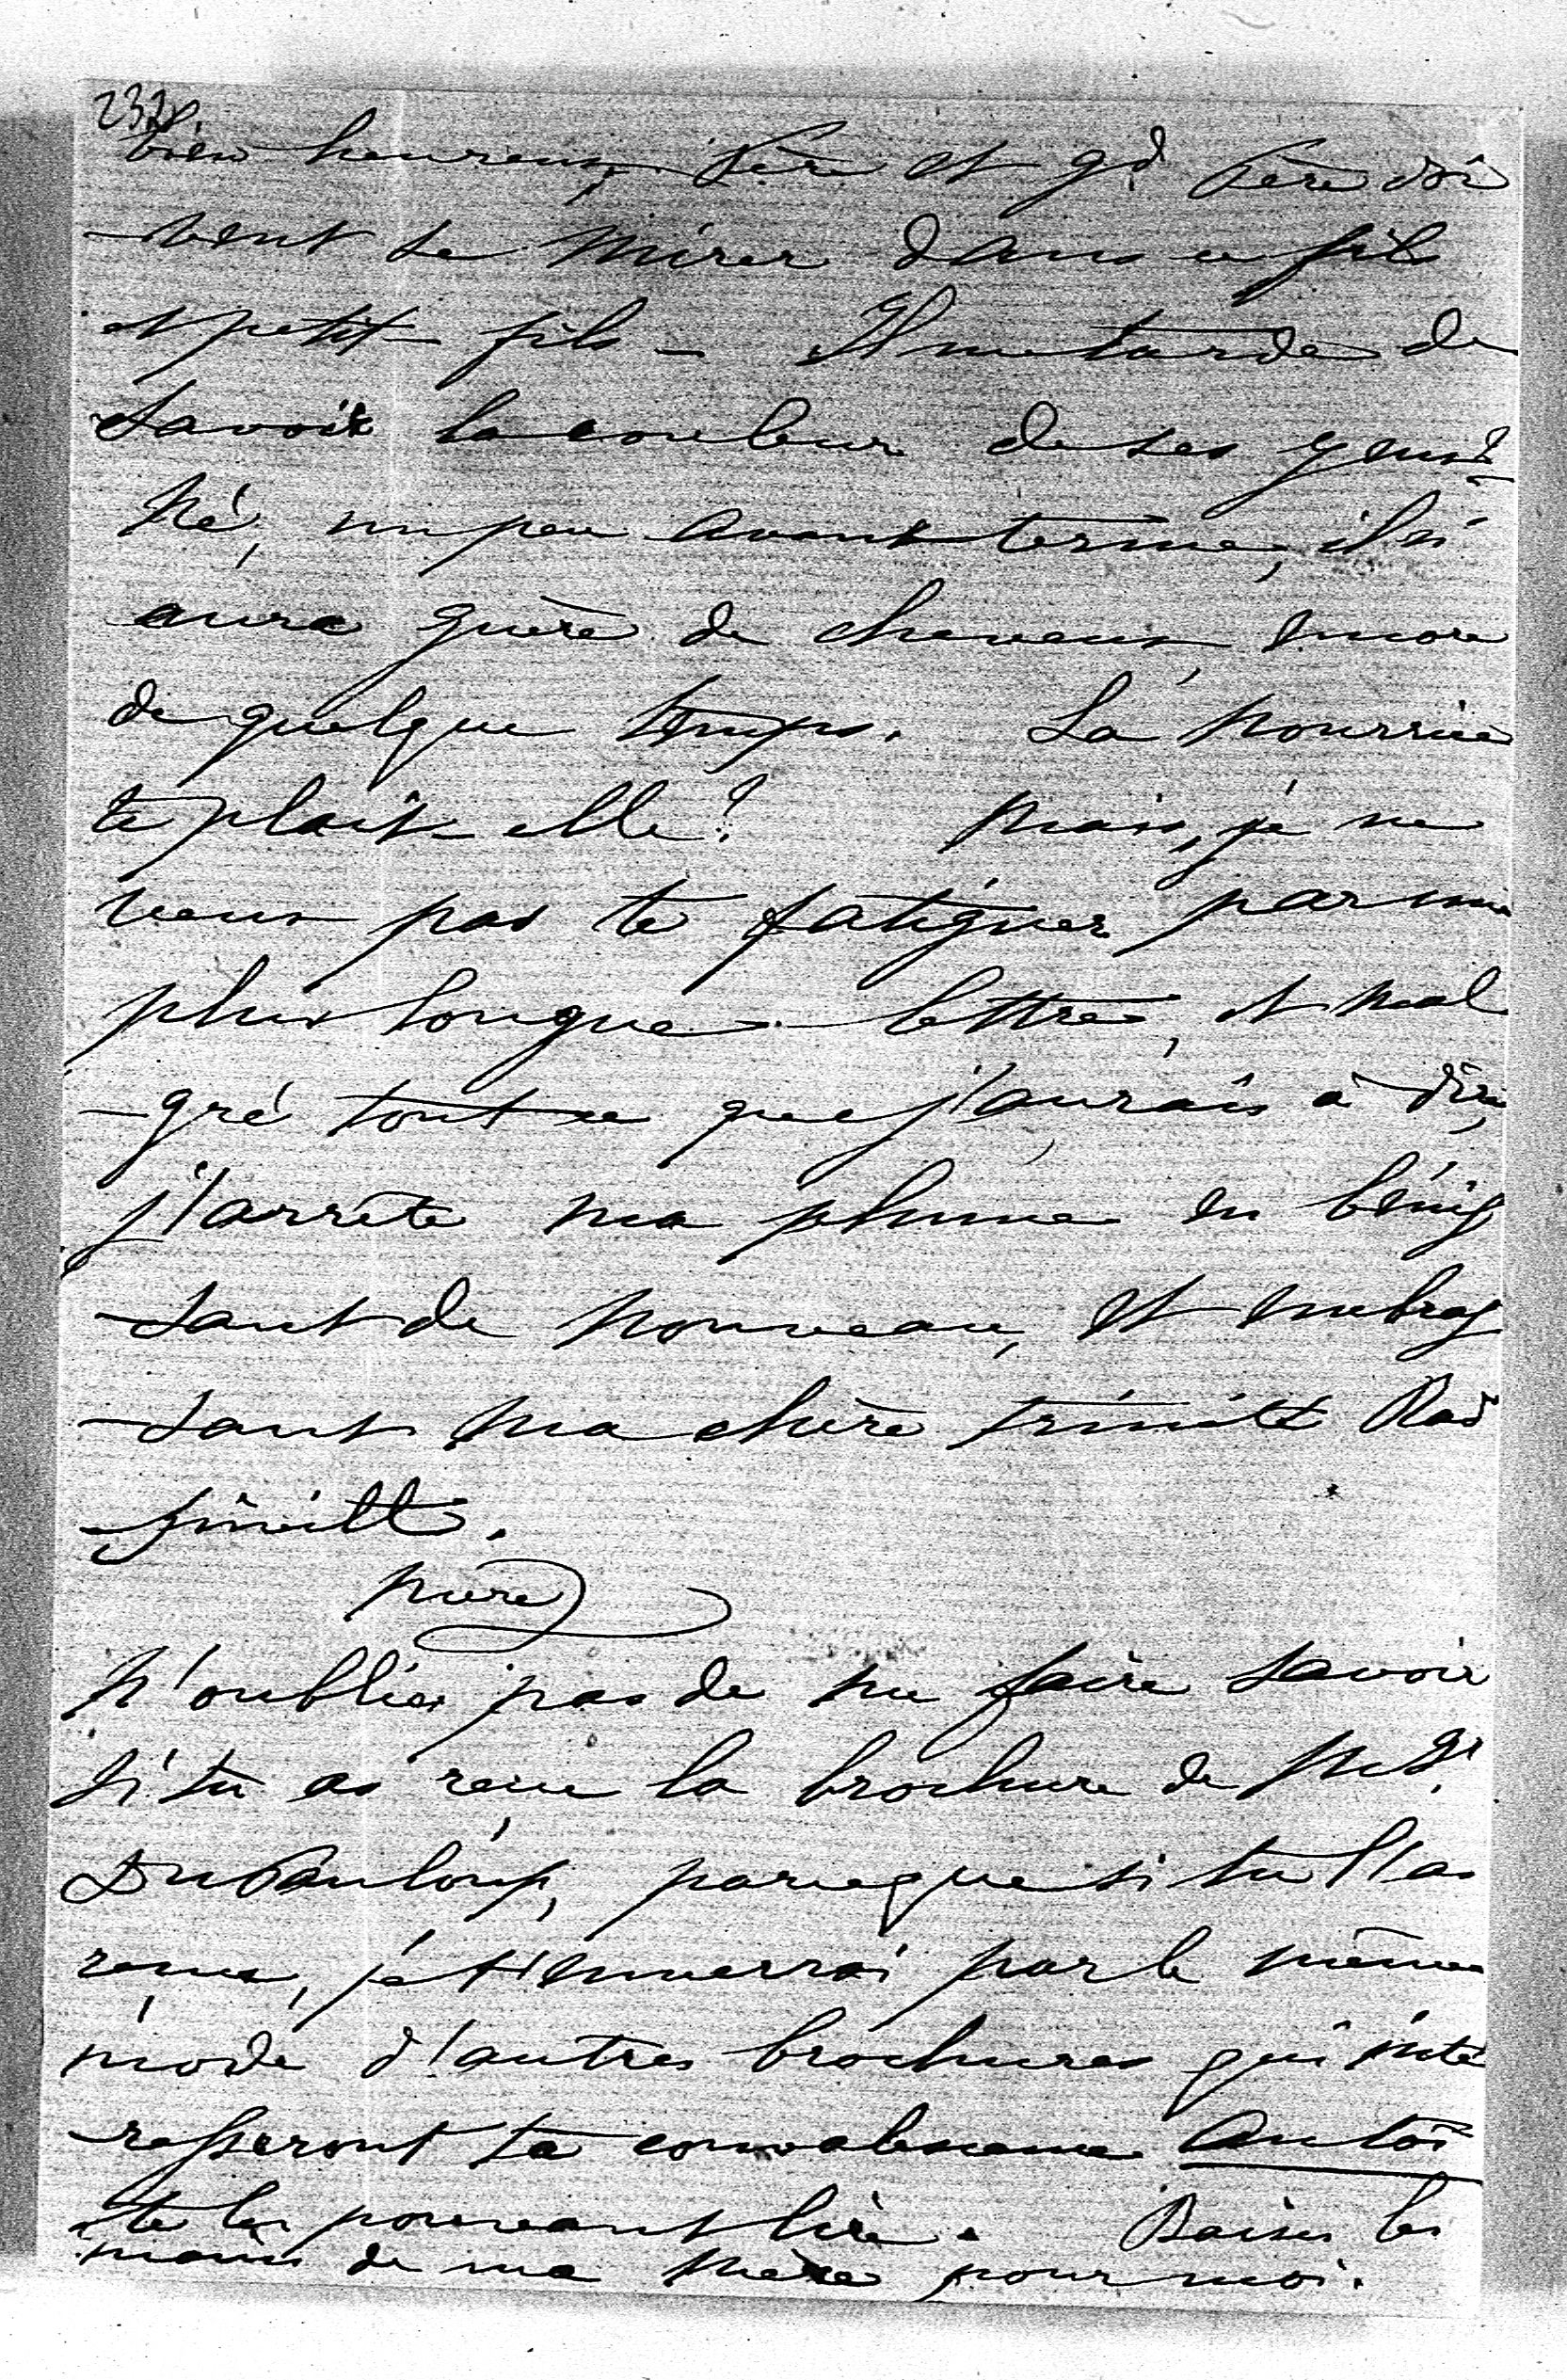 232
bien heureux, Père et gd Père doi
-vent se mirer dans ce fils
et petit-fils - Il me tarde de
savoir la couleur de ses yeux?
Né, un peu avant terme, il n'
aura guère de cheveux, encore
de quelque temps. La nourrice
te plait-elle? Mais, je ne
veux pas te fatiguer par une
plus longue lettre, et mal
-gré tout ce que j'aurais à dire,
j'arrête ma plume en bénis
-sant de nouveau, et embras
-sant ma chère
mère
N'oublies pas de me faire savoir
si tu as reçue la brochure de Mgr
Dupanloup, parceque si tu l'as
reçue, je t'enverrai par le même
mode d'autres brochures qui inté
-resseront ta convalescence Antoi
-te les pouvant lire. Baises les
mains de ma mère pour moi.